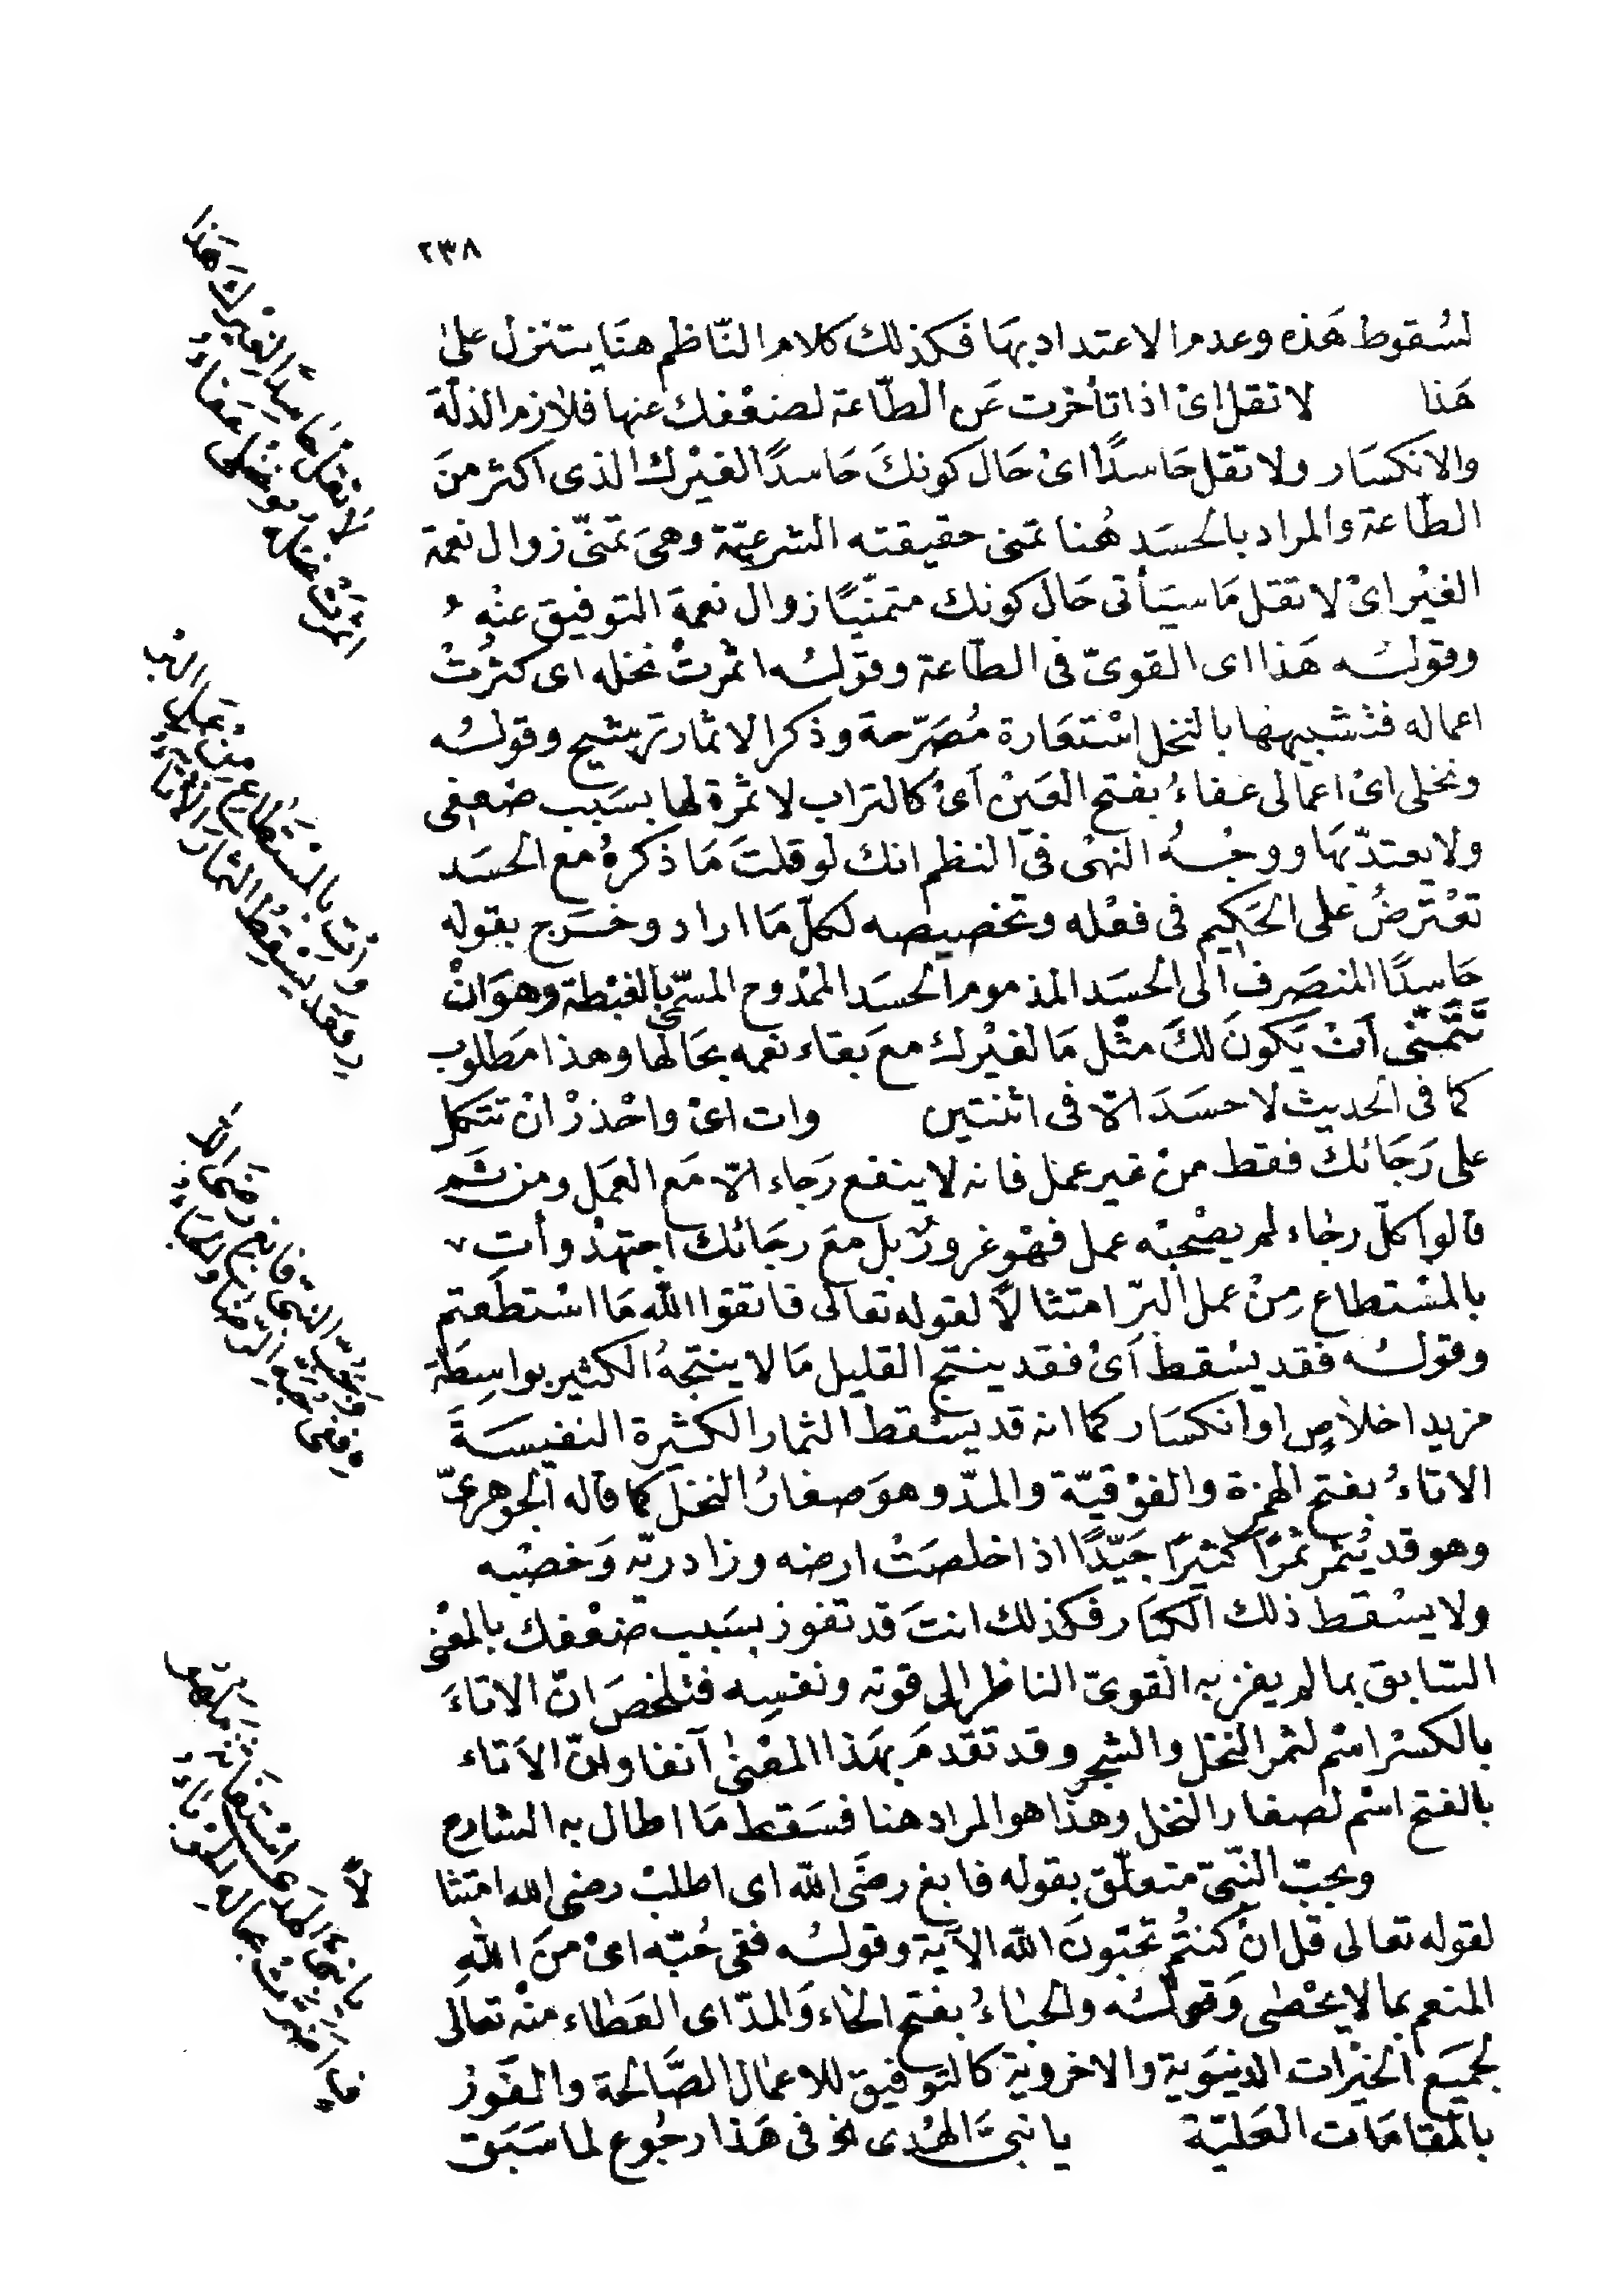 ٢٣٨
لسُقوط هَذه وعدم الاعتداد بهَا فكذلك كلام النّاظم هنَا يتنزل على
هَذا لا تقل اىْ اذا تأخرت عَن الطّاعة لضعْفك عنها فلازم الذلّة
والانكسَار ولا تقل حَاسدًا اىْ حَال كونكَ حَاسدًا لغيْرك الذى اكثر منَ
الطّاعة والمراد بالحسَد هُنا تمنى حقيقته الشرعيّة وهىَ تمنّى زوال نعمة
الغيْر اىْ لا تقل مَا سيَأتى حَال كونك متمنّيًا زوال نعمة التوفيق عنْه
وقولـُه هَذا اى القوىّ فى الطّاعة وقولـُه اثمرتْ نخله اى كثرُتْ
اعماله فتشبيهها بالنخل اسْتعَارة مُصَرّحة وذكر الاثمار ترشيح وقولـُه
ونخلى اىْ اعمالى عفاءُ بفتح العَيْن اَىْ كالتراب لا ثمرة لها بسَبب ضعفى
ولا يعتدّ بهَا ووجْـهُ النهْى فى النظم انك لو قلتَ مَا ذكرهُ مع الحسَد
تعْترضُ على الحَكيم فى فعْله وتخصيصه لكلّ مَا اراد وخرَج بقوله
حَاسِدًا المنصَرف الى الحسَد المذموم الحسَد الممْدوح المسمّى بالغبْطة وهوَ انْ
تتَمَنّى اَنْ يَكونَ لكَ مثْل مَا لغيْرك معَ بقاء نعمه بحَالها وهذا مَطلوب
كما فى الحديث لا حسَدَ الاّ فى اثنتين وات اىْ واحْذرْ انْ تتَكل
على رَجَائك فقط منْ غير عمل فانه لا ينفع رَجاء الاّ مَع العَمل ومن ثَم
قالوا كلّ رجاء لم يصْحبْه عمل فهْو غرورٌ بل معَ رجَائك اجتهدْ وأت
بالمسْتطاع مِنْ عمل البرّ امتثالاً لقوله تعالى فاتقوا الله مَا اسْتطَعتم
وقولـُه فقد يسْقط اَىْ فقد ينتج القليل مَا لا ينتجهُ الكثير بواسِطَة
مزيد اخلاصٍ او انكسَار كما انه قد يسْقط الثمار الكثيرة النفيسَةَ
الاتاءُ بفتح الهمزة والفوْقيّة والمدّ وهوَ صغارُ النخل كما قاله الجوهرىّ
وهو قد يُثمر ثمرًا كثيرًا جَيّدًا اذا خلصَتْ ارضه وزاد ريّه وَخصْبه
ولا يسْقط ذلك الكبَار فكذلك انتَ قد تفوز بسَبب ضعْفك بالمعْنى
السّابق بما لم يفز به القوىّ الناظر الى قوته ونفسِه فتلخصَ انّ الاتاءَ
بالكسْر اسْم لثمر النخل والشجر وقد تقدمَ بهَذا المعْنى آنفا وانّ الاَتاء
بالفتح اسْم لصغار النخل وهذا هو المراد هنا فسَقط مَا اطال به الشارح
وبحبّ النّبىّ متعلّق بقوله فابغ رضَى الله اى اطلبْ رضى الله امتثا
لاً
لقوله تعالى قل انْ كنتُم تحبّونَ الله الآية وقولـُه ففى حُبّه اىْ منَ اللهِ
المنعم بما لا يحْصى وَقولـُه والحباءُ بفتح الحاء وَالمدّ اى العَطاء منْه تعالى
لجميَع الخيْرات الدنيَوية والاخروية كالتوفيق للاعمال الصَّالحة والفَوْز
بالمقامَات العَليّة يا نبىَّ الهُدى الخ فى هَذا رجُوع لما سَبَق
لا تقلْ حَاسِدًا لغيْرك هَذا
اثمرَتْ نخله ونخْلى عَفاءُ
وأتِ بالمسْتَطَاع مِنْ عَمَل البِرّ
فقد يُسْقِطُ الثمارَ الاَتَاءُ
وَبحُبّ النّبىّ فابْغِ رضَى اللهِ
ففى حُبّهِ الرّضَا وَالحبَاءُ
يا نبىَّ الهُدَى اسْتغَاثة